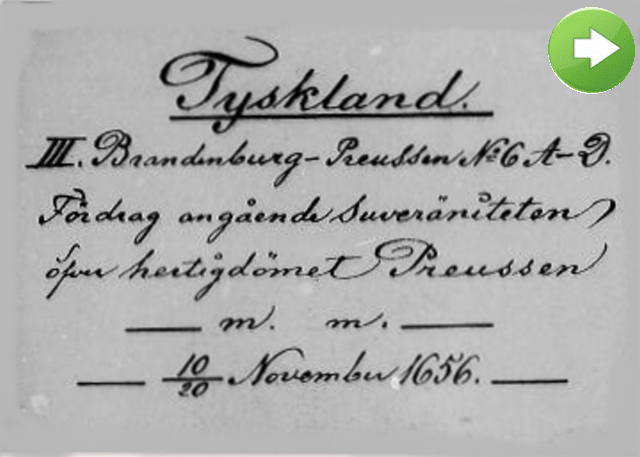 Tyskland.
III. Brandenburg-Preussen No 6 A-D.
Fördrag angående Suveräniteten
öfver hertigdömet Preussen
— m. m. —
— 10/20 November 1656. —